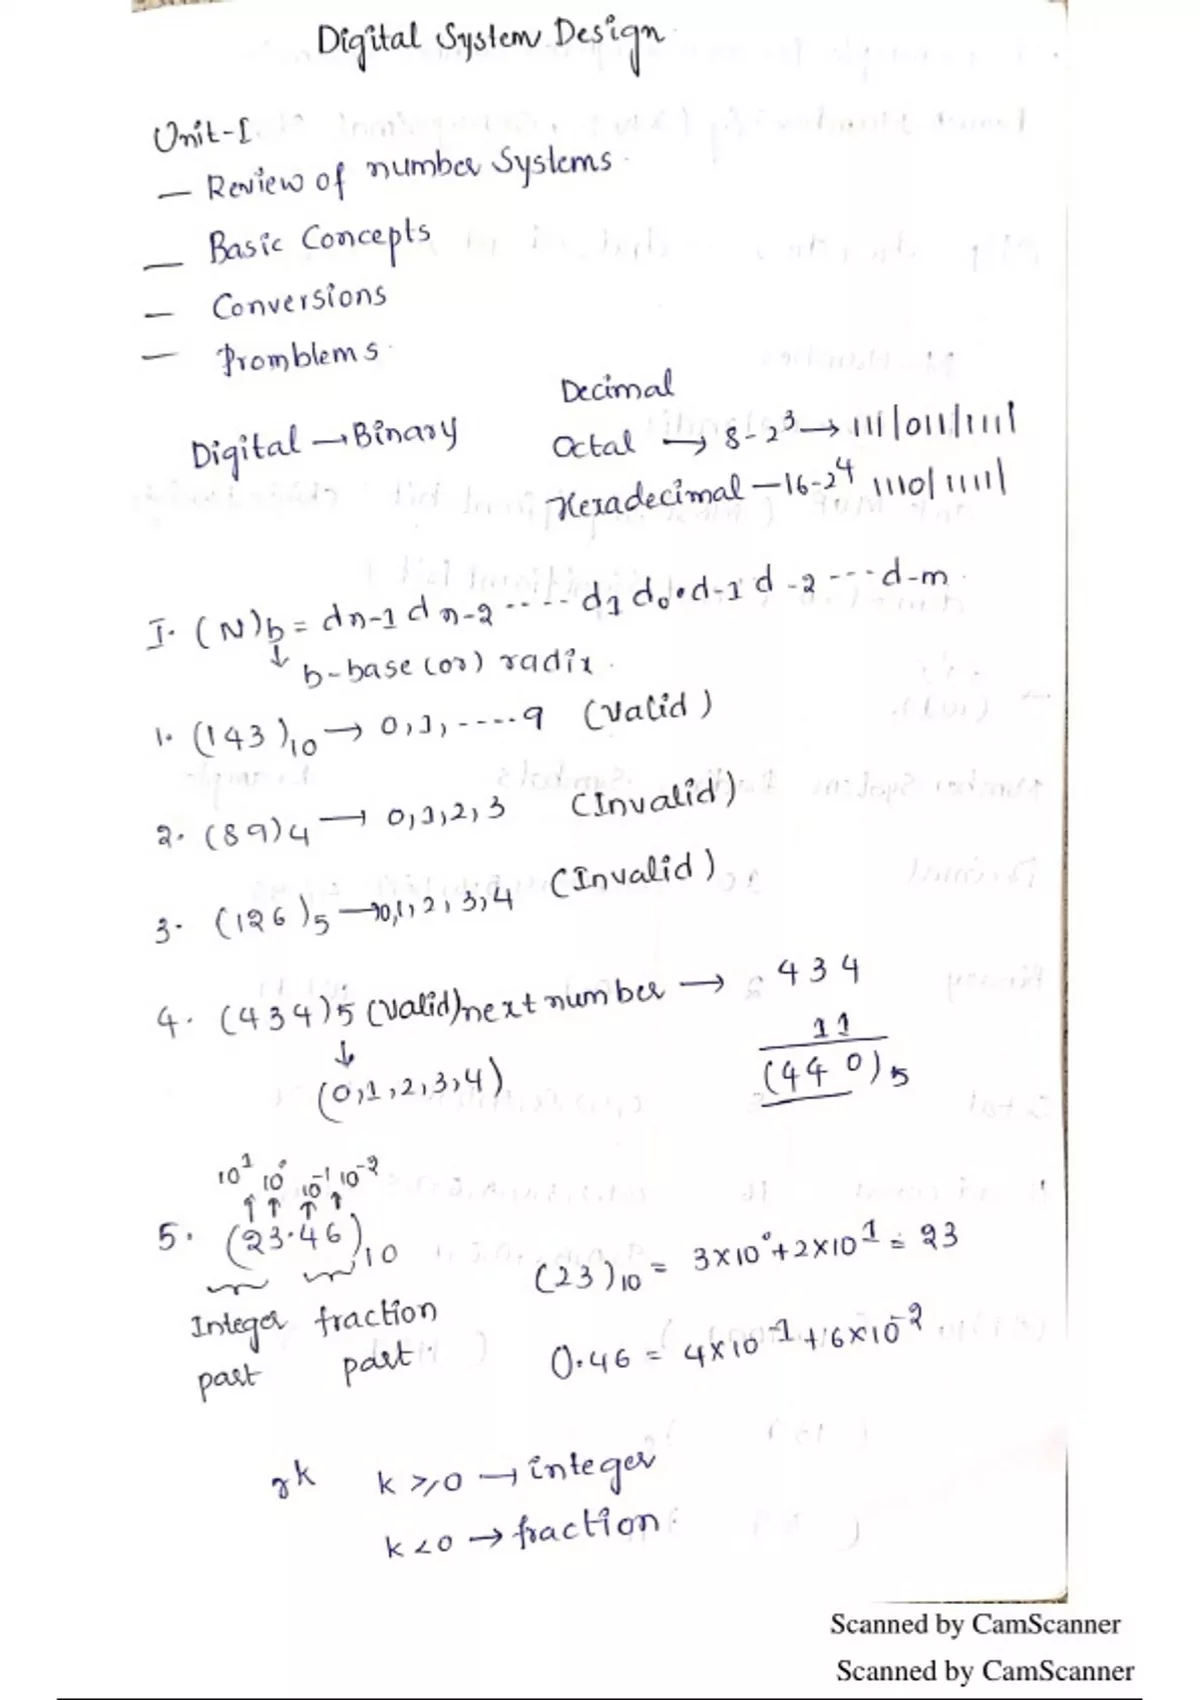 Digital System Design
Unit-I
— Review of number Systems.
— Basic Concepts
— Conversions
— Promblems.
Digital → Binary
Decimal
Octal → 8-2³ → 111|011|1111
Hexadecimal — 16-2⁴ 1110|1111|
I. (N)b = dn-1 dn-2 ----- d1 d0.d-1 d-2 ---d-m
↓
b-base (or) radix.
1. (143)10 → 0,1, ----9 (Valid)
2. (89)4 → 0,1,2,3 (Invalid)
3. (126)5 → 0,1,2,3,4 (Invalid)
4. (434)5 (Valid) next number → 434
↓
(0,1,2,3,4)
11
(440)5
10¹ 10⁰ 10⁻¹ 10⁻²
↑ ↑ ↑ ↑
5. (23.46)10
Integer fraction
part part.
(23)10 = 3×10⁰+2×10¹ = 23
0.46 = 4×10⁻¹+6×10⁻²
rᵏ k ≥ 0 → integer
k < 0 → fraction.
Scanned by CamScanner
Scanned by CamScanner